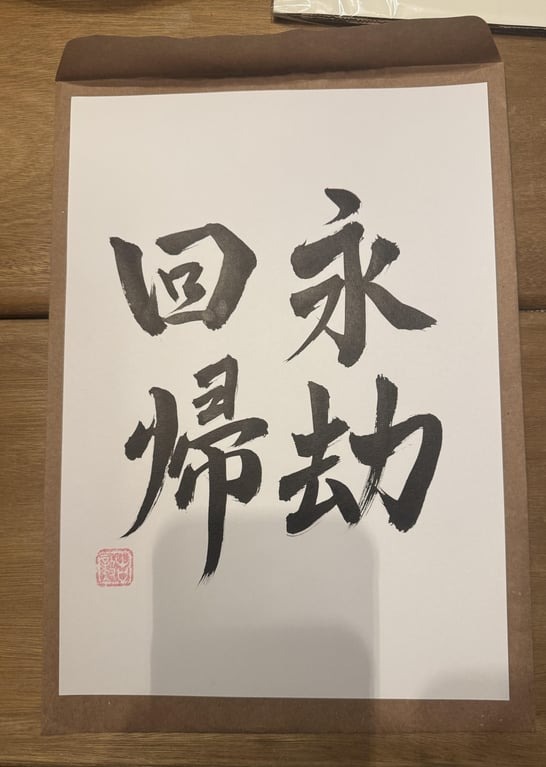 永劫
回帰